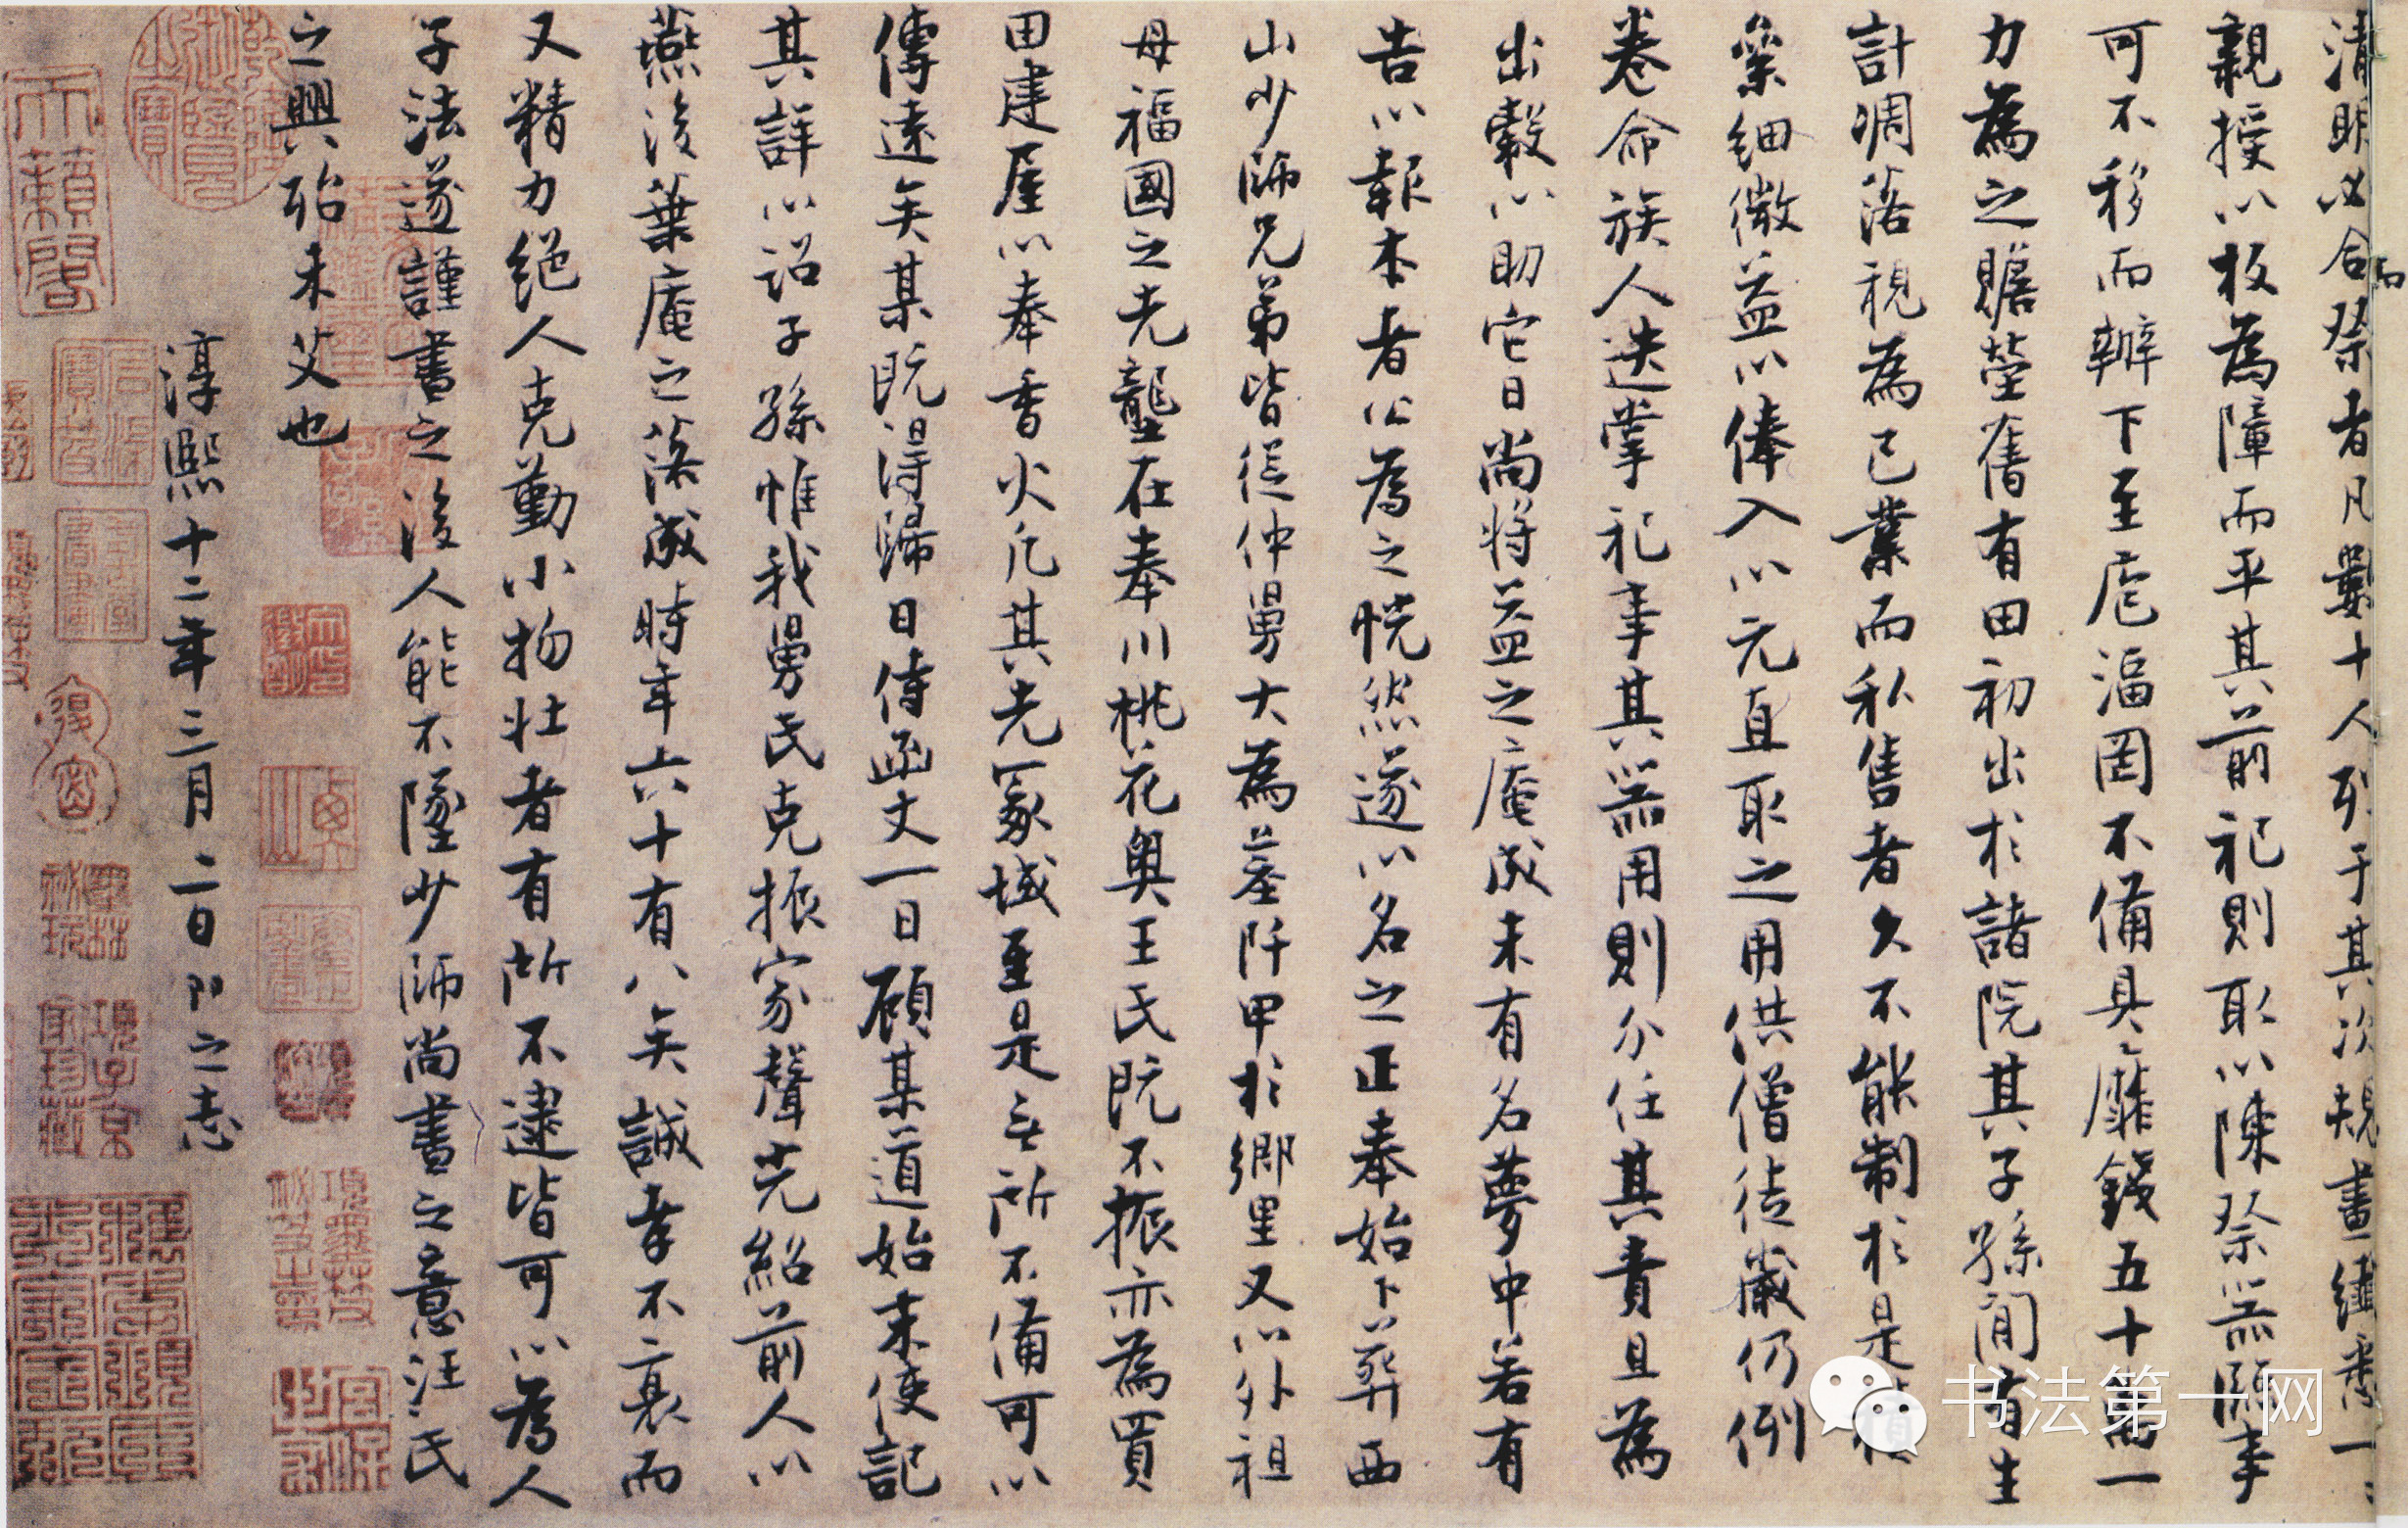 清明必合祭者凡數十人列于其次規畫纖悉一一
親授以板為障而平其前祀則取以陳祭器願事
可不移而辦下至庖湢罔不備具靡錢五十萬一
力為之贍塋舊有田初出於諸院其子孫間有生
計凋落視為己業而私售者久不能制於是積
絫細微益以俸入以元直取之用供僧徒歲仍例
卷命族人迭掌祀事其器用則分任其責且為
出穀以助它日尚將益之庵成未有名夢中若有
告以報本者公為之怳然遂以名之正奉始卜葬西
山少師兄弟皆從仲舅大為墓阡甲於鄉里又以外祖
母福國之先壟在奉川桃花奧王氏既不振亦為買
田建屋以奉香火凡其先冢域至是無所不備可以
傳遠矣某既得歸日侍函丈一日顧某道始末使記
其詳以詔子孫惟我舅氏克振家聲光紹前人以
燕後葉庵之落成時年六十有八矣誠孝不衰而
又精力絕人克勤小物壯者有所不逮皆可以為人
子法遂謹書之後人能不墜少師尚書之意汪氏
之興殆未艾也
淳熙十二年三月二日 之志
书法第一网